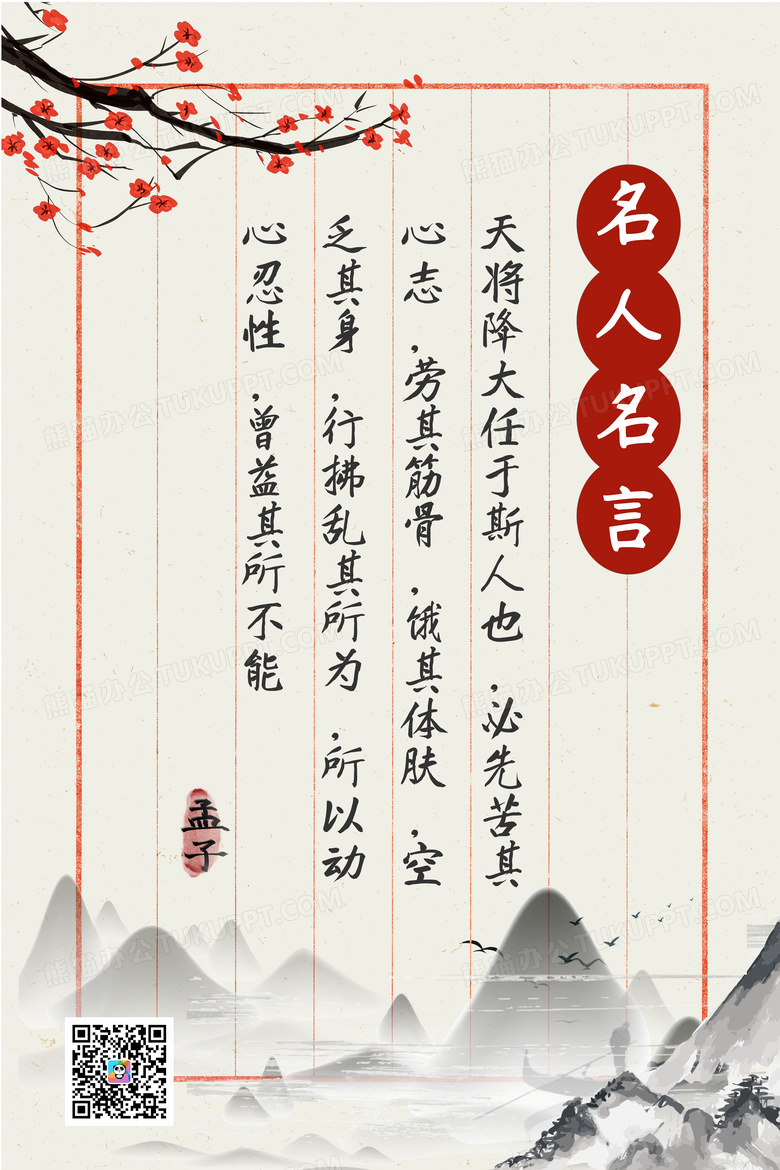 名人名言
天将降大任于斯人也,必先苦其
心志,劳其筋骨,饿其体肤,空
乏其身,行拂乱其所为,所以动
心忍性,曾益其所不能
孟子
熊猫办公 TUKUPPT.COM